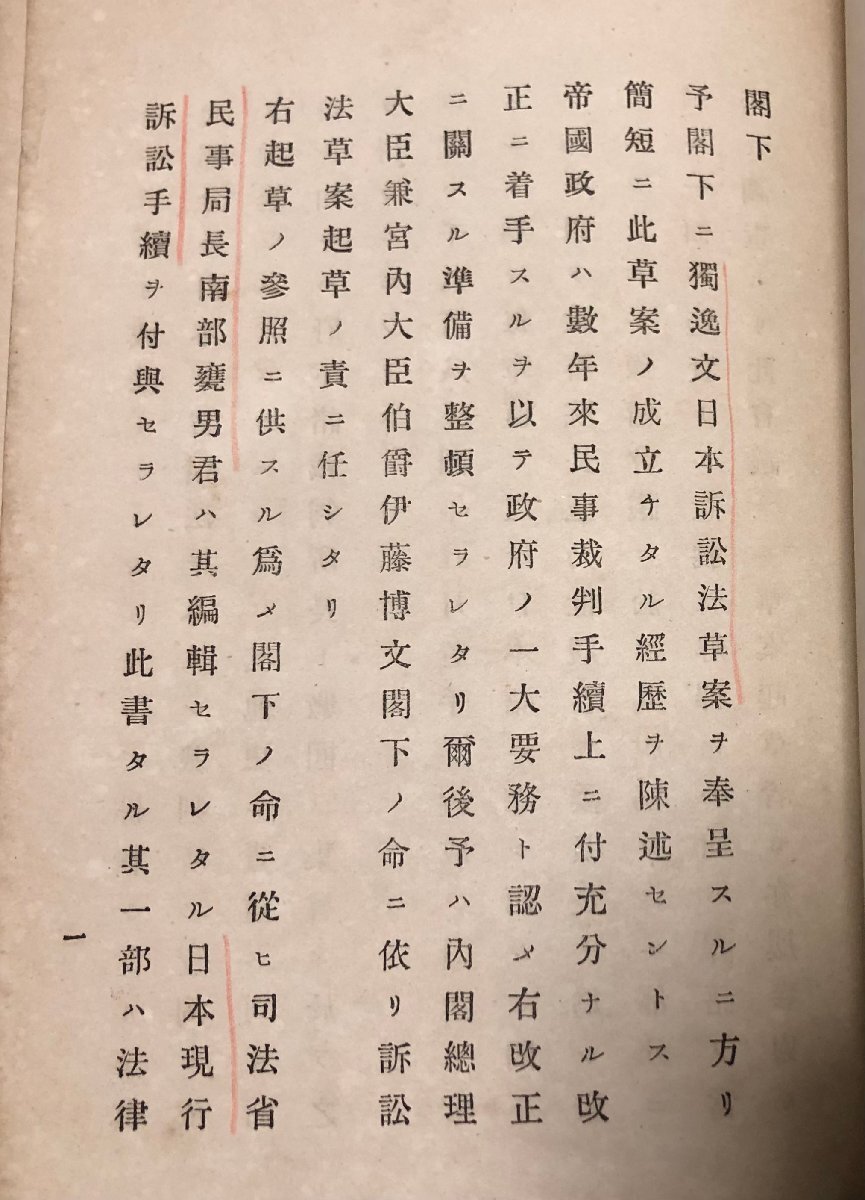 閣下
予閣下ニ獨逸文日本訴訟法草案ヲ奉呈スルニ方リ
簡短ニ此草案ノ成立チタル經歷ヲ陳述セントス
帝國政府ハ數年來民事裁判手續上ニ付充分ナル改
正ニ着手スルヲ以テ政府ノ一大要務ト認メ右改正
ニ關スル準備ヲ整頓セラレタリ爾後予ハ內閣總理
大臣兼宮內大臣伯爵伊藤博文閣下ノ命ニ依リ訴訟
法草案起草ノ責ニ任シタリ
右起草ノ參照ニ供スル爲メ閣下ノ命ニ從ヒ司法省
民事局長南部甕男君ハ其編輯セラレタル日本現行
訴訟手續ヲ付與セラレタリ此書タル其一部ハ法律
一